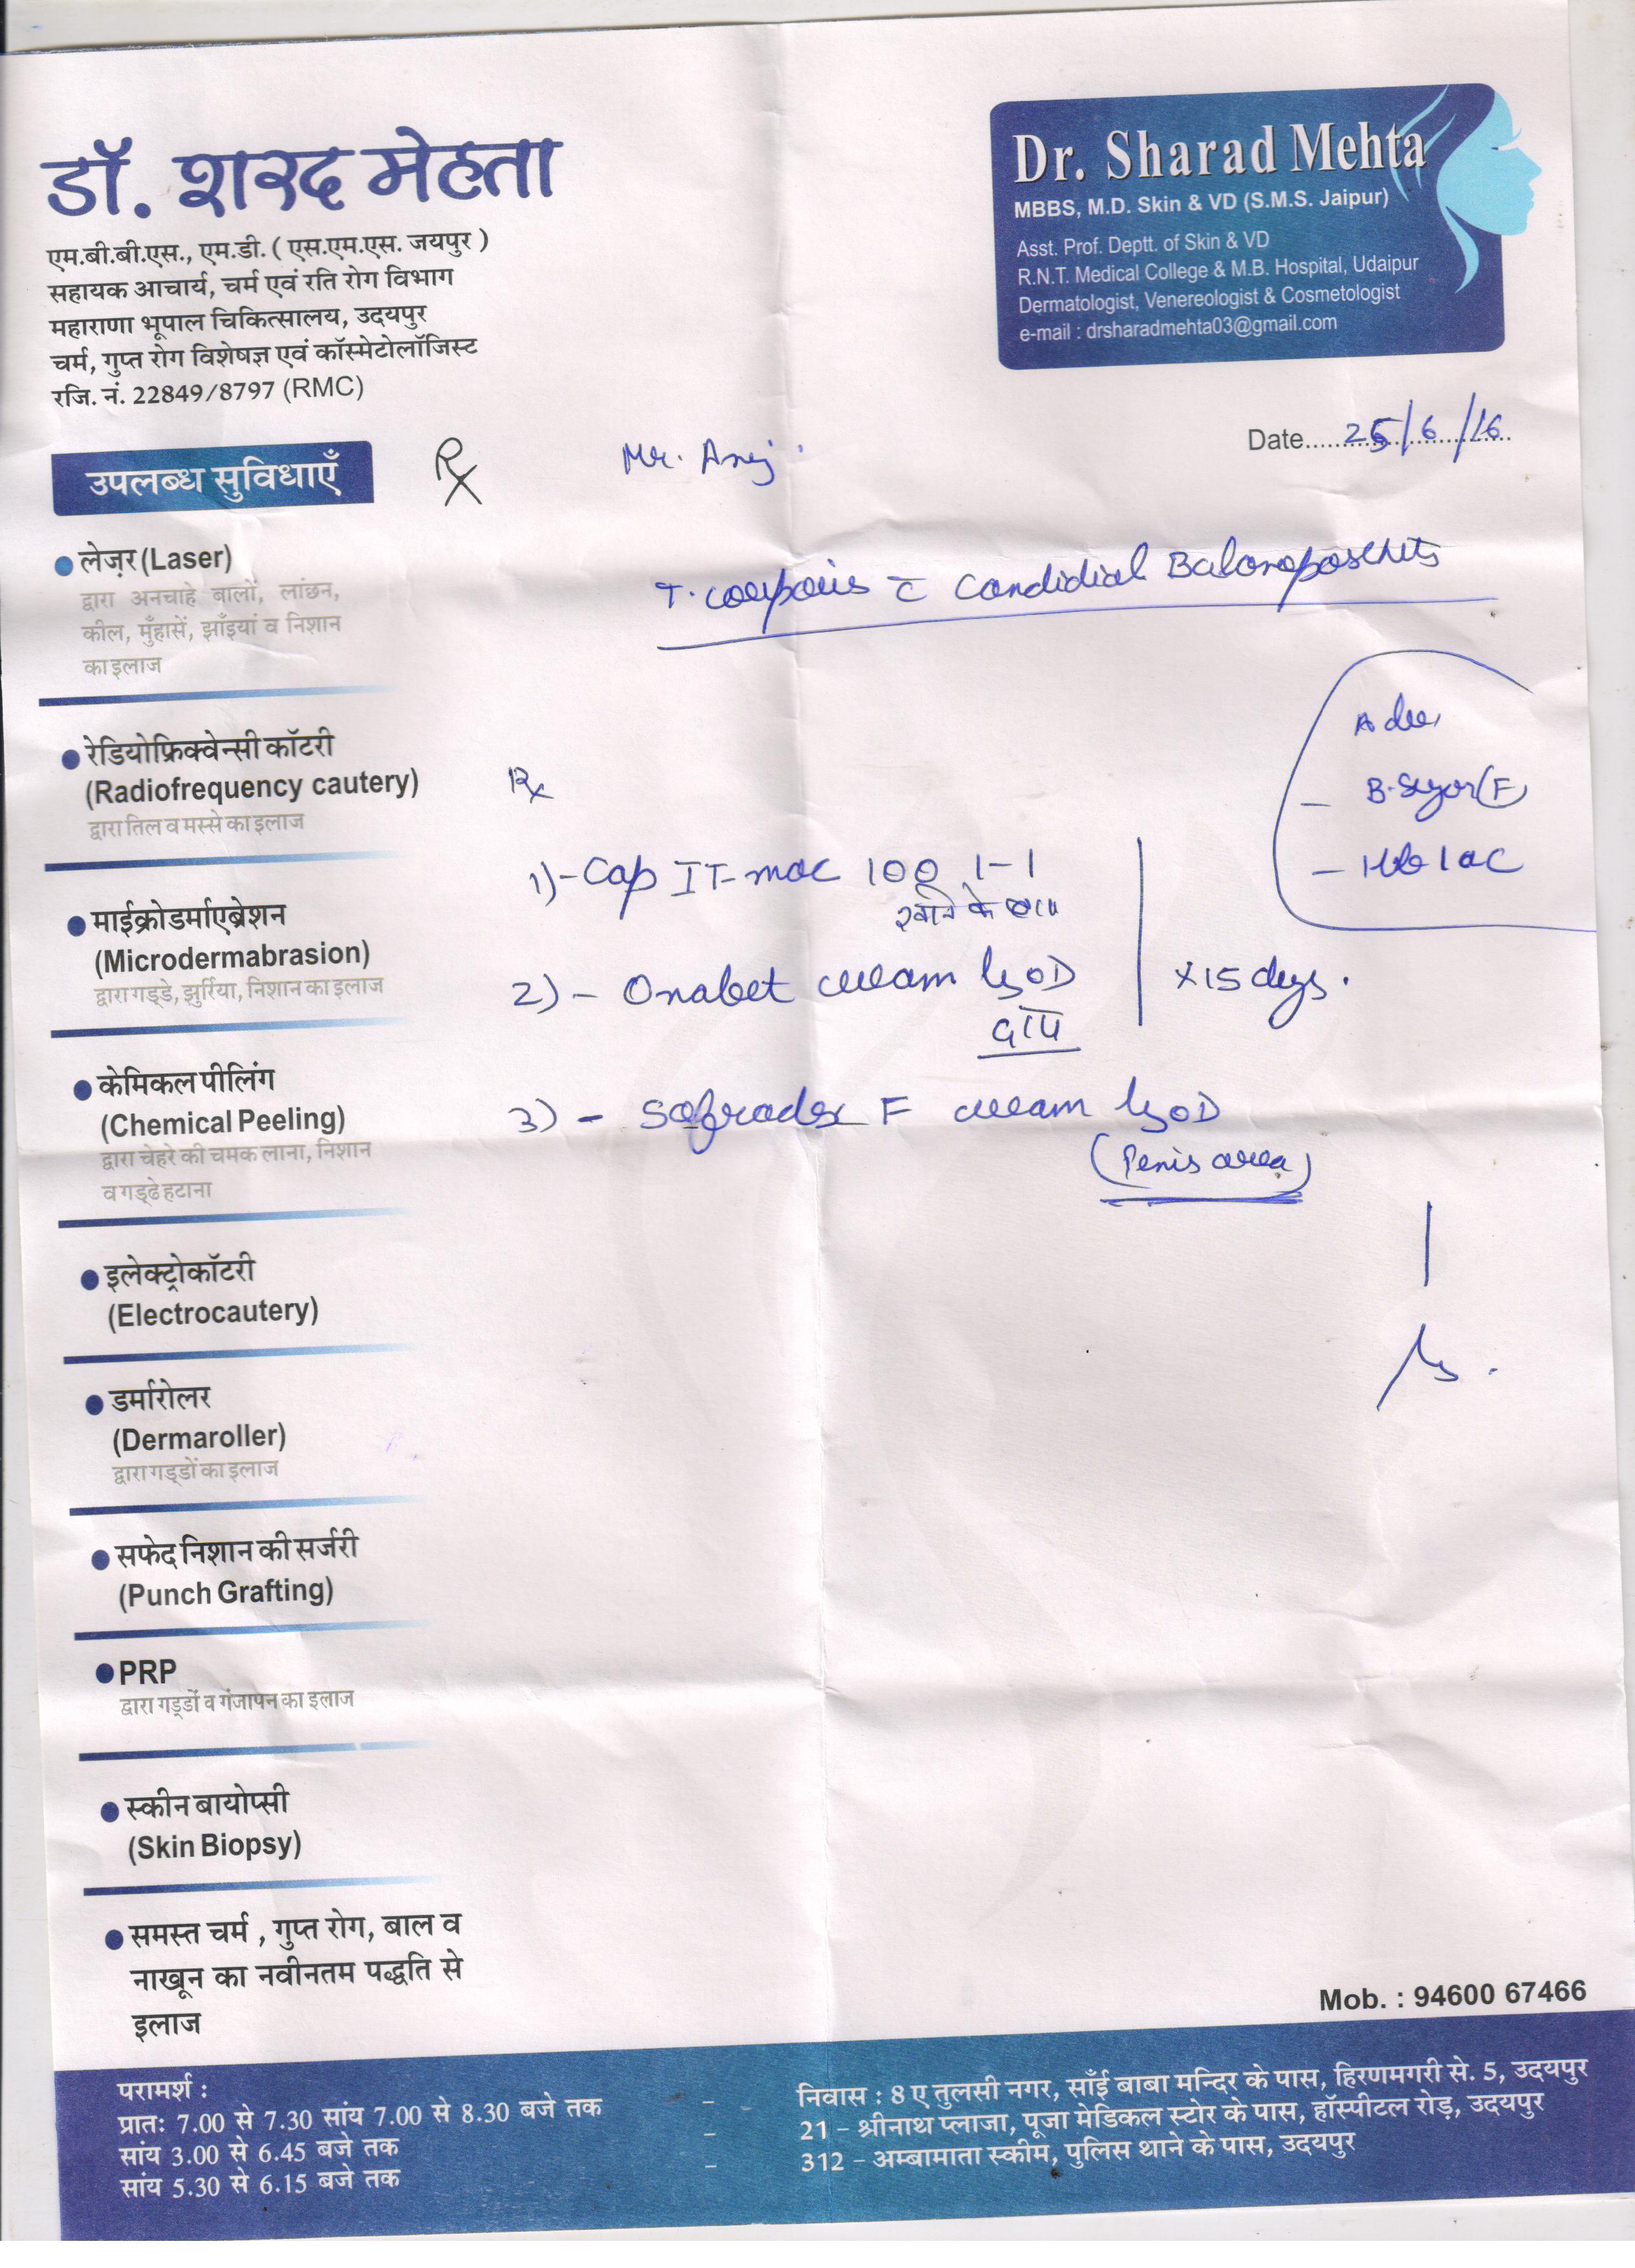 डॉ. शरद मेहता
एम.बी.बी.एस., एम.डी. ( एस.एम.एस. जयपुर )
सहायक आचार्य, चर्म एवं रति रोग विभाग
महाराणा भूपाल चिकित्सालय, उदयपुर
चर्म, गुप्त रोग विशेषज्ञ एवं कॉस्मेटोलॉजिस्ट
रजि. नं. 22849/8797 (RMC)
Dr. Sharad Mehta
MBBS, M.D. Skin & VD (S.M.S. Jaipur)
Asst. Prof. Deptt. of Skin & VD
R.N.T. Medical College & M.B. Hospital, Udaipur
Dermatologist, Venereologist & Cosmetologist
e-mail : drsharadmehta03@gmail.com
Date 25/6/16
Rx Mr.
T. corporis c Candidial Balanoposthits
Adv,
- B. Sugar (F)
- Hb1ac
Rx
1)- Cap IT-mac 100 1-1
खाने के बाद
2) - Onabet cream L/A OD
x 15 days.
दाद
3) - Sofradex F cream L/A OD
(Penis area)
उपलब्ध सुविधाएँ
लेज़र (Laser)
द्वारा अनचाहे बालों, लांछन,
कील, मुँहासें, झाँइयां व निशान
का इलाज
रेडियोफ्रिक्वेन्सी कॉटरी
(Radiofrequency cautery)
द्वारा तिल व मस्से का इलाज
माईक्रोडर्माएब्रेशन
(Microdermabrasion)
द्वारा गड्डे, झुर्रिया, निशान का इलाज
केमिकल पीलिंग
(Chemical Peeling)
द्वारा चेहरे की चमक लाना, निशान
व गड्ढे हटाना
इलेक्ट्रोकॉटरी
(Electrocautery)
डर्मारोलर
(Dermaroller)
द्वारा गड्डों का इलाज
सफेद निशान की सर्जरी
(Punch Grafting)
PRP
द्वारा गड्डों व गंजापन का इलाज
स्कीन बायोप्सी
(Skin Biopsy)
समस्त चर्म , गुप्त रोग, बाल व
नाखून का नवीनतम पद्धति से
इलाज
Mob. : 94600 67466
परामर्श :
प्रातः 7.00 से 7.30 सांय 7.00 से 8.30 बजे तक - निवास : 8 ए तुलसी नगर, साँई बाबा मन्दिर के पास, हिरणमगरी से. 5, उदयपुर
सांय 3.00 से 6.45 बजे तक - 21 - श्रीनाथ प्लाजा, पूजा मेडिकल स्टोर के पास, हॉस्पीटल रोड़, उदयपुर
सांय 5.30 से 6.15 बजे तक - 312 - अम्बामाता स्कीम, पुलिस थाने के पास, उदयपुर